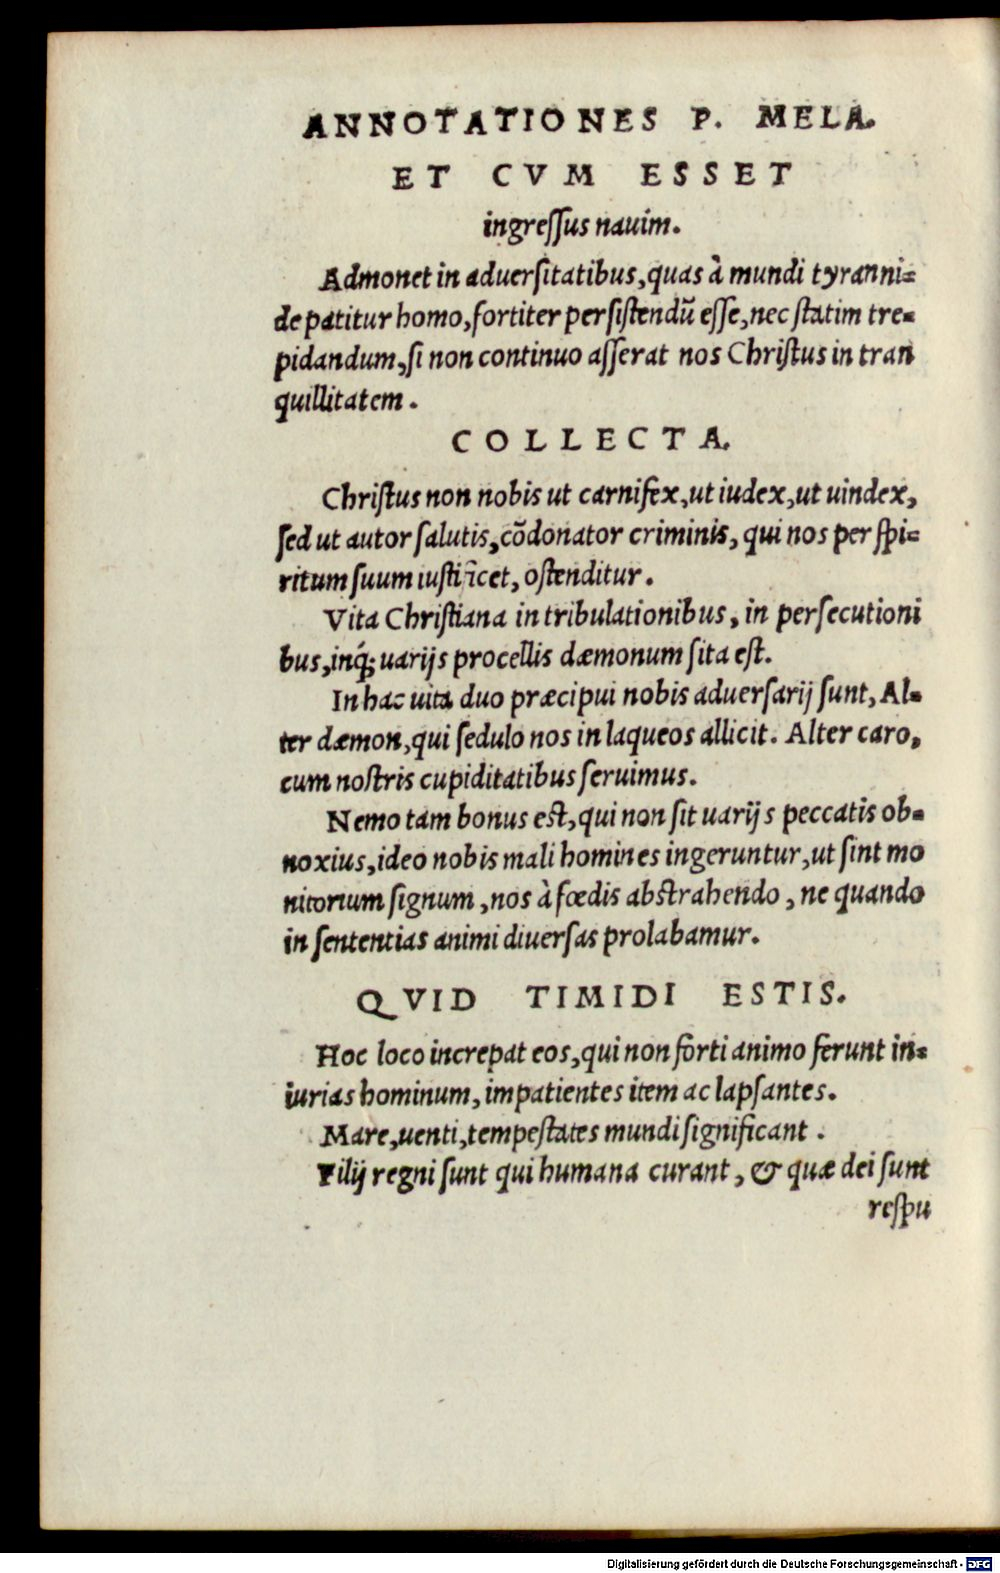 ANNOTATIONES P. MELA.
ET CVM ESSET
ingreſſus nauim.
Admonet in aduerſitatibus, quas à mundi tyranni=
de patitur homo, fortiter perſiſtendũ eſſe, nec ſtatim tre=
pidandum, ſi non continuo aſſerat nos Chriſtus in tran
quillitatem.
COLLECTA.
Chriſtus non nobis ut carnifex, ut iudex, ut uindex,
ſed ut autor ſalutis, cõdonator criminis, qui nos per ſpi=
ritum ſuum iuſtificet, oſtenditur.
Vita Chriſtiana in tribulationibus, in perſecutioni
bus, inq́; uarijs procellis dæmonum ſita eſt.
In hac uita duo præcipui nobis aduerſarij ſunt, Al=
ter dæmon, qui ſedulo nos in laqueos allicit. Alter caro,
cum noſtris cupiditatibus ſeruimus.
Nemo tam bonus eſt, qui non ſit uarijs peccatis ob=
noxius, ideo nobis mali homines ingeruntur, ut ſint mo
nitorium ſignum, nos à fœdis abſtrahendo, ne quando
in ſententias animi diuerſas prolabamur.
QVID TIMIDI ESTIS.
Hoc loco increpat eos, qui non forti animo ferunt in=
iurias hominum, impatientes item ac lapſantes.
Mare, uenti, tempeſtates mundi ſignificant.
Filij regni ſunt qui humana curant, & quæ dei ſunt
reſpu
Digitalisierung gefördert durch die Deutsche Forschungsgemeinschaft - DFG